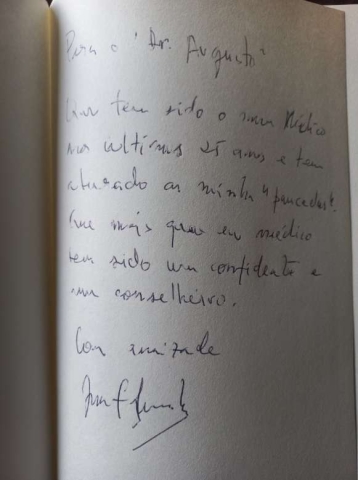 Para o "Dr. Augusto"
Que tem sido o meu Médico
nos últimos 25 anos e tem
aturado as minhas "pancadas".
Que mais que um médico
tem sido um confidente e
um conselheiro.
Com amizade